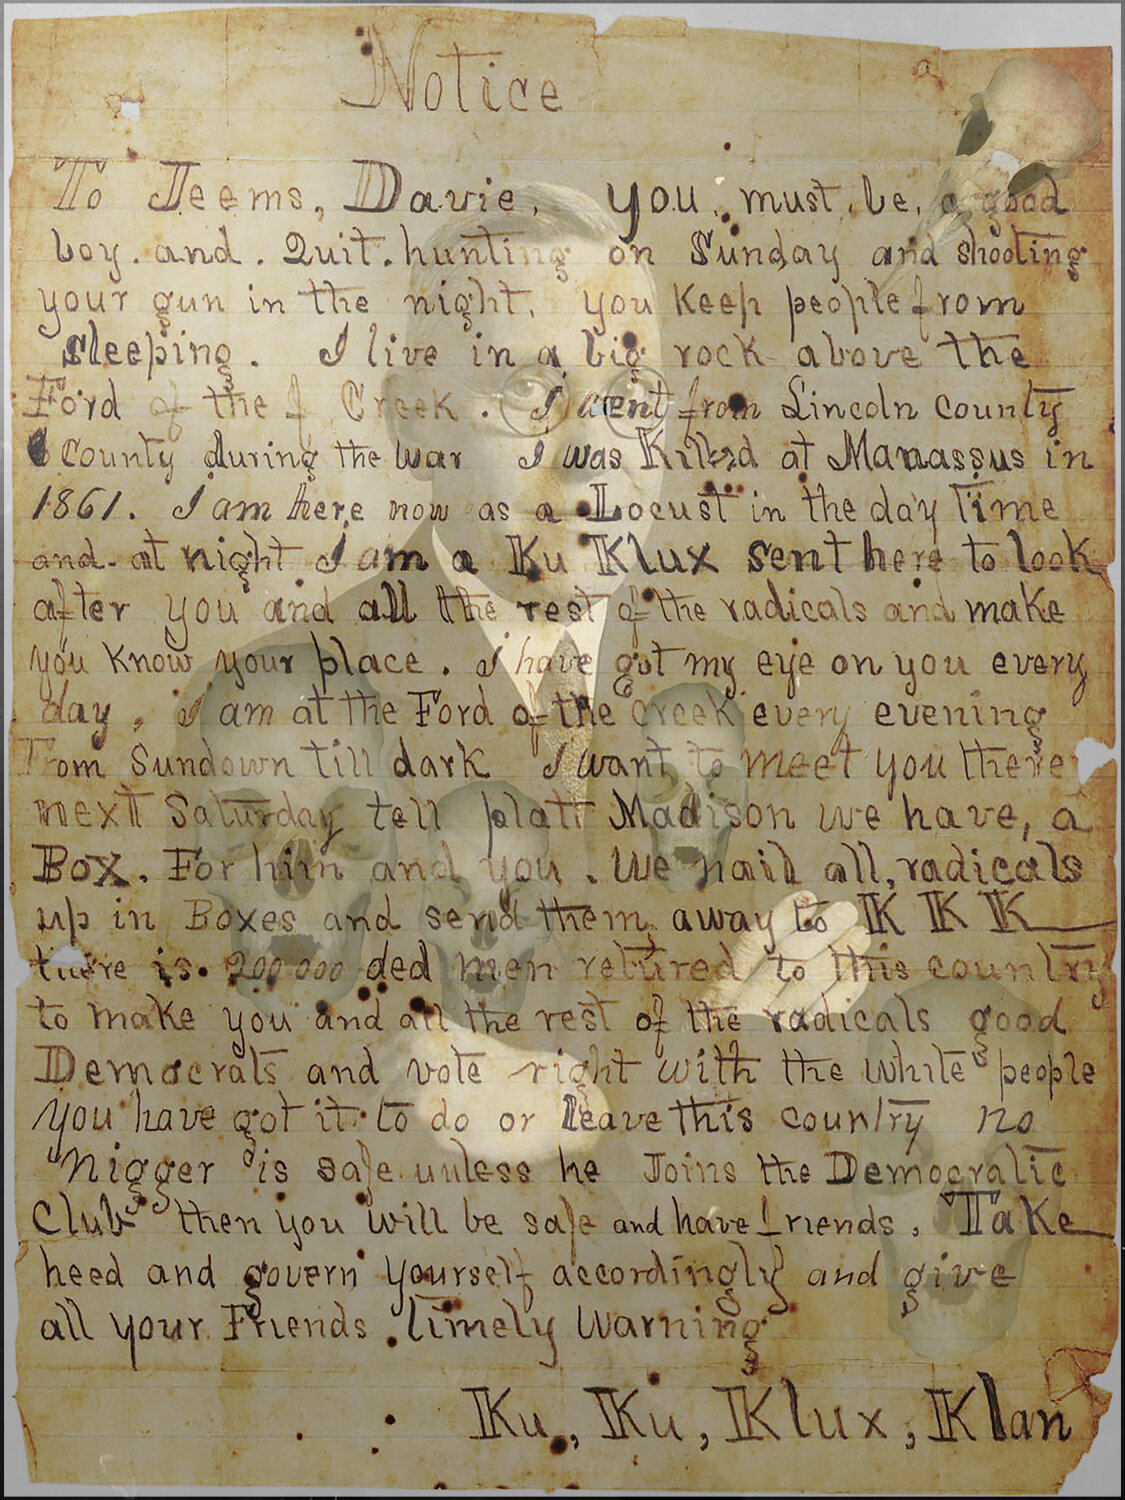 Notice
To Jeems, Davie, you, must, be, a good
boy. and. Quit. hunting on Sunday and shooting
your gun in the night. you keep people from
sleeping. I live in a big rock above the
Ford of the Creek. I went from Lincoln County
County during the war I was Killed at Manassus in
1861. I am here now as a Locust in the day Time
and. at night I am a Ku Klux sent here to look
after you and all the rest of the radicals and make
you know your place. I have got my eye on you every
day, I am at the Ford of the Creek every evening
From Sundown till dark I want to meet you there
next Saturday tell platt Madison we have, a
Box. For him and you. We nail all, radicals
up in Boxes and send them away to KKK
there is. 200 000 ded men retured to this country
to make you and all the rest of the radicals good
Democrats and vote right with the white people
You have got it to do or leave this country no
nigger is safe unless he Joins the Democratic
Club then you will be safe and have friends. Take
heed and govern yourself accordingly and give
all your Friends. timely warning
Ku, Ku, Klux, Klan